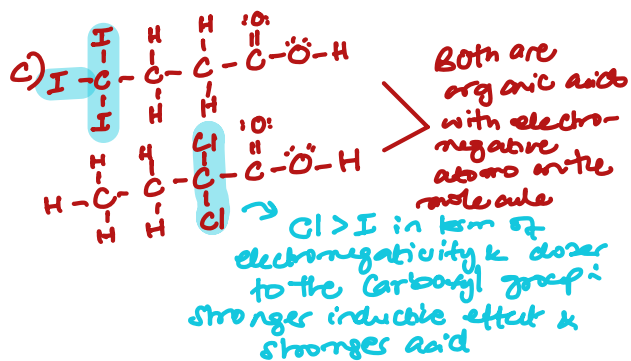 C)
H H H :O:
I - C - C - C - C - Ö - H
H H H
H H Cl :O:
H - C - C - C - C - Ö - H
H H Cl
Both are
organic acids
with electro-
negative
atoms on the
molecule
→ Cl > I in term of
electronegativity & closer
to the carboxyl group ∴
stronger inducible effect &
stronger acid